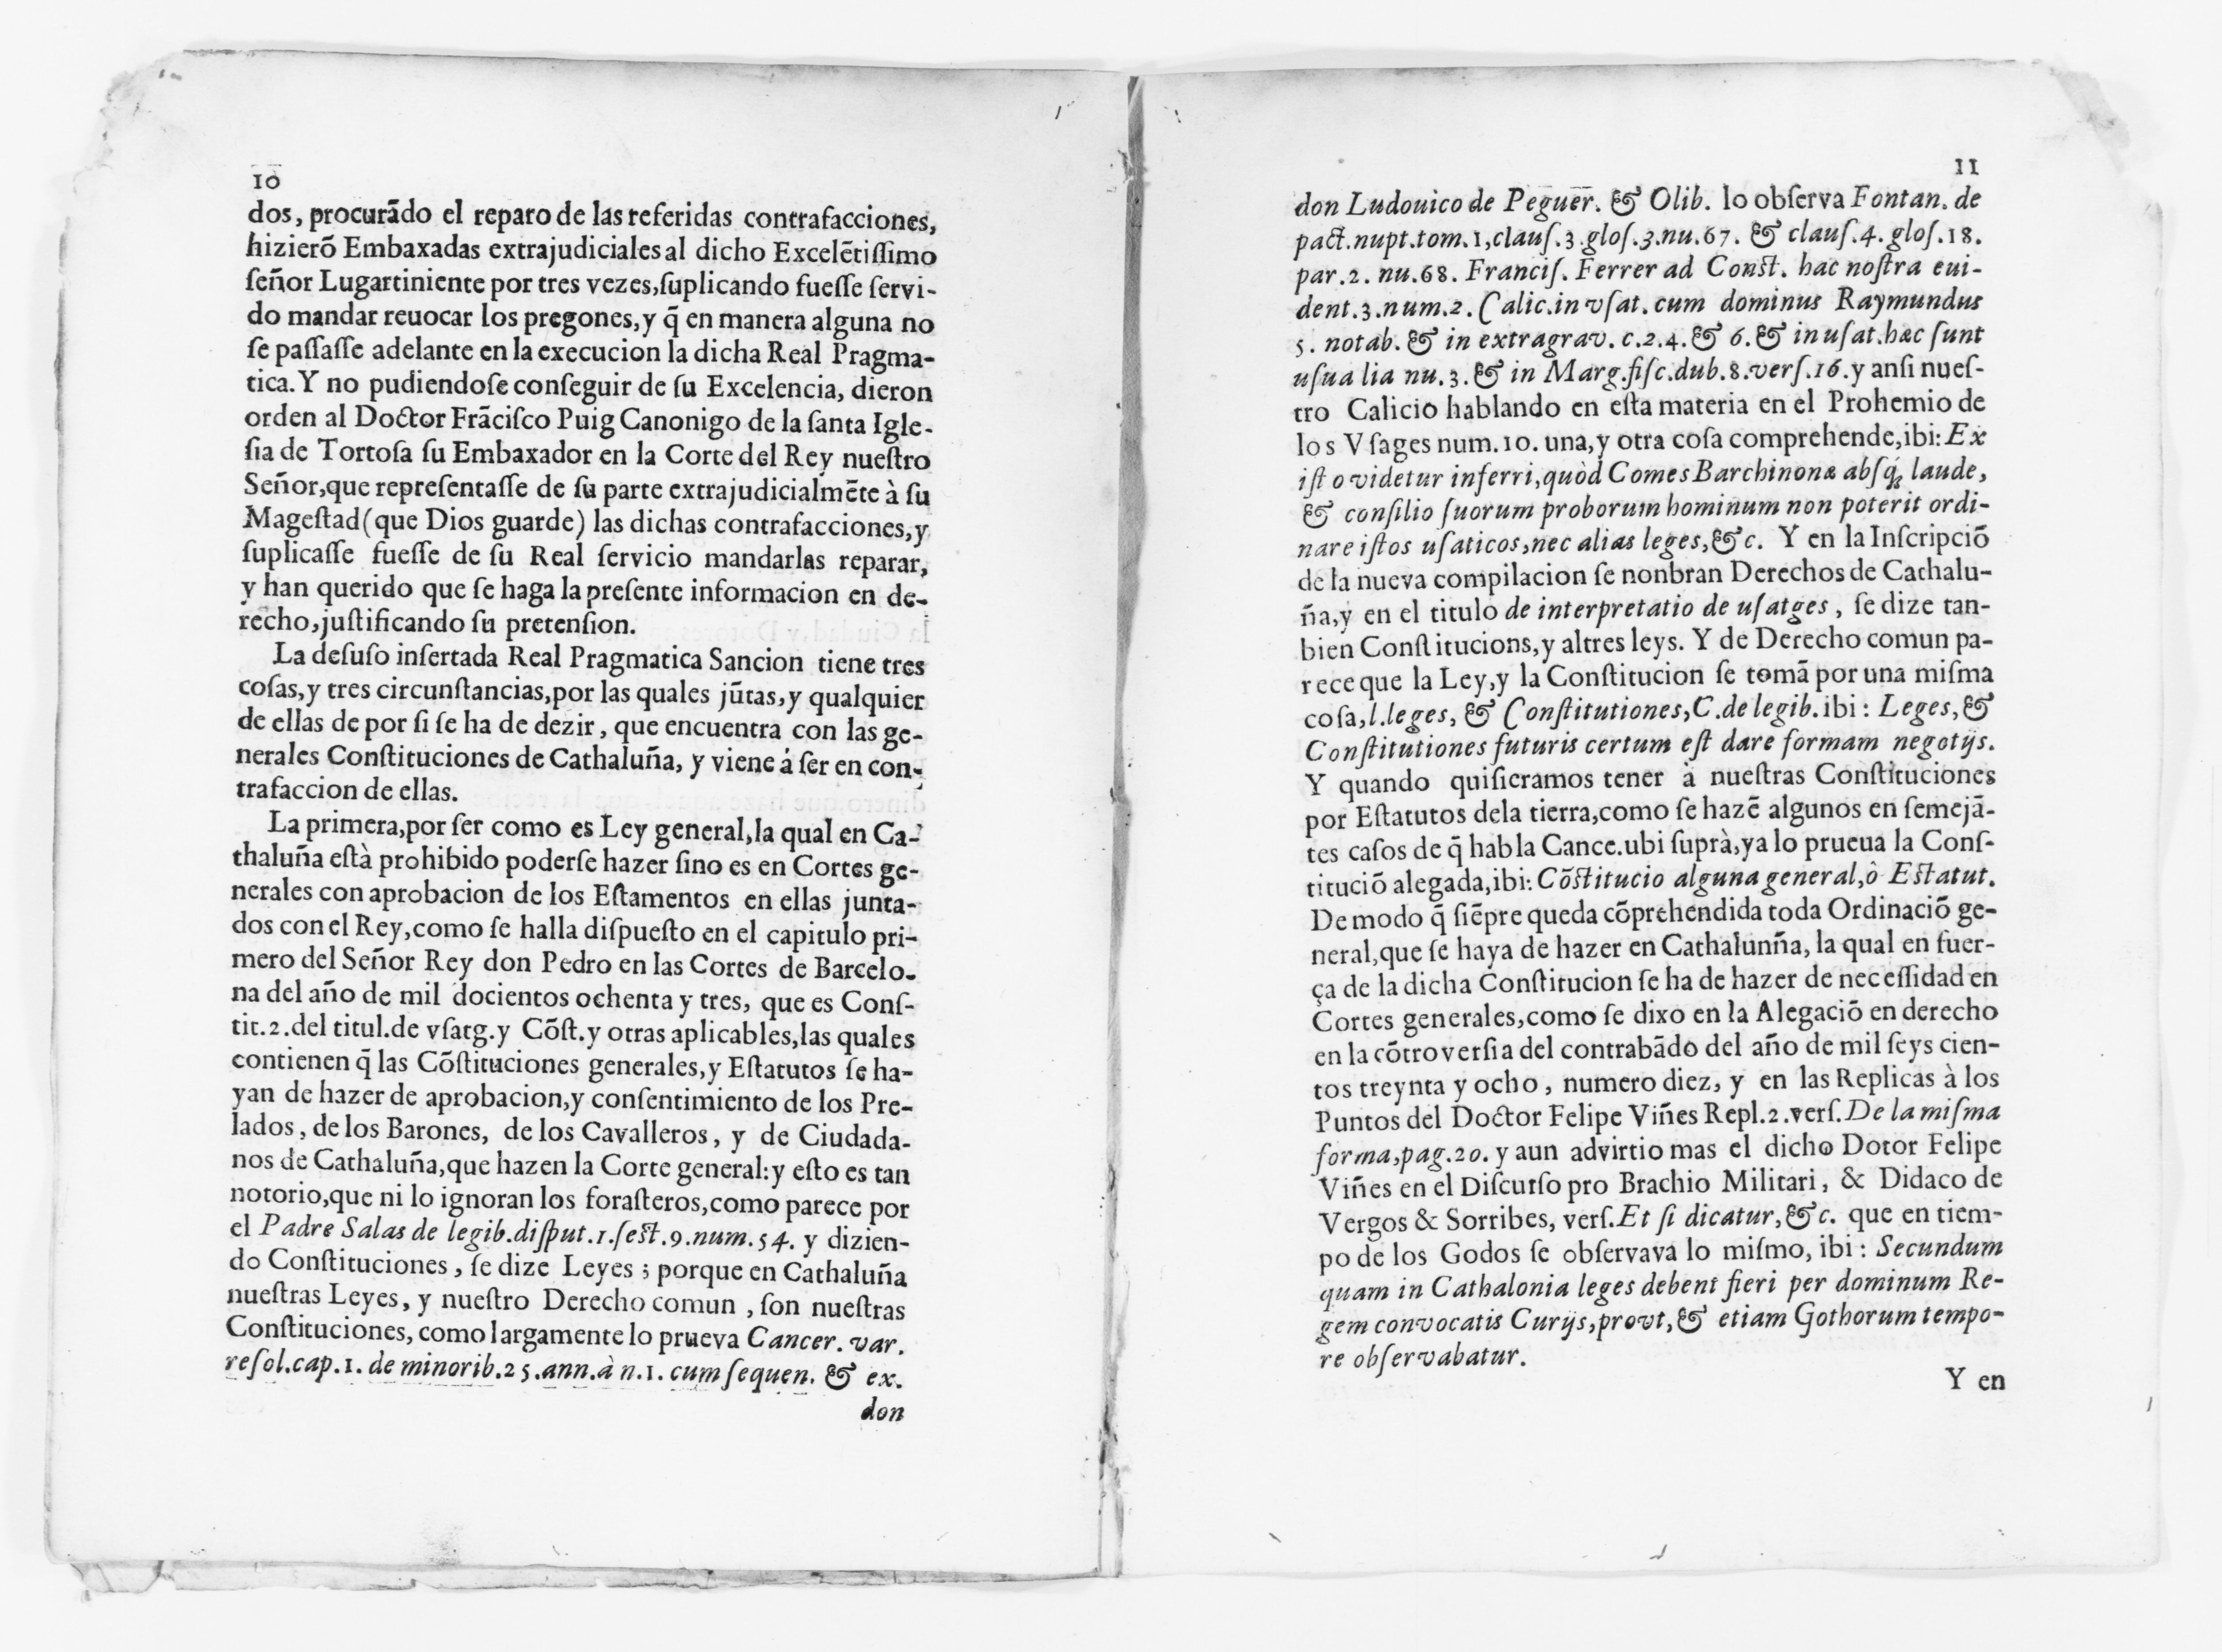 10
dos, procurãdo el reparo de las referidas contrafacciones,
hizierõ Embaxadas extrajudiciales al dicho Excelẽtiſſimo
ſeñor Lugartiniente por tres vezes,ſuplicando fueſſe ſervi-
do mandar reuocar los pregones,y q̃ en manera alguna no
ſe paſſaſſe adelante en la execucion la dicha Real Pragma-
tica. Y no pudiendoſe conſeguir de ſu Excelencia, dieron
orden al Doctor Frãciſco Puig Canonigo de la ſanta Igle-
ſia de Tortoſa ſu Embaxador en la Corte del Rey nueſtro
Señor,que repreſentaſſe de ſu parte extrajudicialmẽte à ſu
Mageſtad(que Dios guarde) las dichas contrafacciones,y
ſuplicaſſe fueſſe de ſu Real ſervicio mandarlas reparar,
y han querido que ſe haga la preſente informacion en de-
recho,juſtificando ſu pretenſion.
La deſuſo inſertada Real Pragmatica Sancion tiene tres
coſas,y tres circunſtancias,por las quales jũtas,y qualquier
de ellas de por ſi ſe ha de dezir, que encuentra con las ge-
nerales Conſtituciones de Cathaluña, y viene á ſer en con-
trafaccion de ellas.
La primera,por ſer como es Ley general,la qual en Ca-
thaluña eſtà prohibido poderſe hazer ſino es en Cortes ge-
nerales con aprobacion de los Eſtamentos en ellas junta-
dos con el Rey,como ſe halla diſpueſto en el capitulo pri-
mero del Señor Rey don Pedro en las Cortes de Barcelo-
na del año de mil docientos ochenta y tres, que es Conſ-
tit.2.del titul.de vſatg.y Cõſt.y otras aplicables,las quales
contienen q̃ las Cõſtituciones generales,y Eſtatutos ſe ha-
yan de hazer de aprobacion,y conſentimiento de los Pre-
lados, de los Barones, de los Cavalleros, y de Ciudada-
nos de Cathaluña,que hazen la Corte general:y eſto es tan
notorio,que ni lo ignoran los foraſteros,como parece por
el Padre Salas de legib.diſput.1.ſect.9.num.54. y dizien-
do Conſtituciones, ſe dize Leyes; porque en Cathaluña
nueſtras Leyes, y nueſtro Derecho comun, ſon nueſtras
Conſtituciones, como largamente lo prueva Cancer. var.
reſol.cap.1. de minorib.25.ann.à n.1. cum ſequen. & ex.
don
11
don Ludouico de Peguer. & Olib. lo obſerva Fontan. de
pact.nupt.tom.1,clauſ.3.gloſ.3.nu.67. & clauſ.4.gloſ.18.
par.2. nu.68. Franciſ. Ferrer ad Conſt. hac noſtra eui-
dent.3.num.2. Calic.in vſat. cum dominus Raymundus
5. notab. & in extragrav. c.2.4.& 6.& in uſat.hæc ſunt
uſualia nu.3.& in Marg.fiſc.dub.8.verſ.16.y anſi nueſ-
tro Calicio hablando en eſta materia en el Prohemio de
los Vſages num.10. una,y otra coſa comprehende,ibi: Ex
iſto videtur inferri,quòd Comes Barchinonæ abſq; laude,
& conſilio ſuorum proborum hominum non poterit ordi-
nare iſtos uſaticos,nec alias leges,&c. Y en la Inſcripciõ
de la nueva compilacion ſe nonbran Derechos de Cathalu-
ña,y en el titulo de interpretatio de uſatges, ſe dize tan-
bien Conſtitucions,y altres leys. Y de Derecho comun pa-
rece que la Ley,y la Conſtitucion ſe tomã por una miſma
coſa,l.leges, & Conſtitutiones,C.de legib.ibi: Leges,&
Conſtitutiones futuris certum eſt dare formam negotijs.
Y quando quiſieramos tener à nueſtras Conſtituciones
por Eſtatutos dela tierra,como ſe hazẽ algunos en ſemejã-
tes caſos de q̃ habla Cance.ubi ſuprà,ya lo prueua la Conſ-
tituciõ alegada,ibi: Cõſtitucio alguna general,ò Eſtatut.
De modo q̃ ſiẽpre queda cõprehendida toda Ordinaciõ ge-
neral,que ſe haya de hazer en Cathalunña, la qual en fuer-
ça de la dicha Conſtitucion ſe ha de hazer de neceſſidad en
Cortes generales,como ſe dixo en la Alegaciõ en derecho
en la cõtroverſia del contrabãdo del año de mil ſeys cien-
tos treynta y ocho, numero diez, y en las Replicas à los
Puntos del Doctor Felipe Viñes Repl.2.verſ.De la miſma
forma,pag.20. y aun advirtio mas el dicho Dotor Felipe
Viñes en el Diſcurſo pro Brachio Militari, & Didaco de
Vergos & Sorribes, verſ.Et ſi dicatur,&c. que en tiem-
po de los Godos ſe obſervava lo miſmo, ibi: Secundum
quam in Cathalonia leges debent fieri per dominum Re-
gem convocatis Curijs,prout,& etiam Gothorum tempo-
re obſervabatur.
Y en